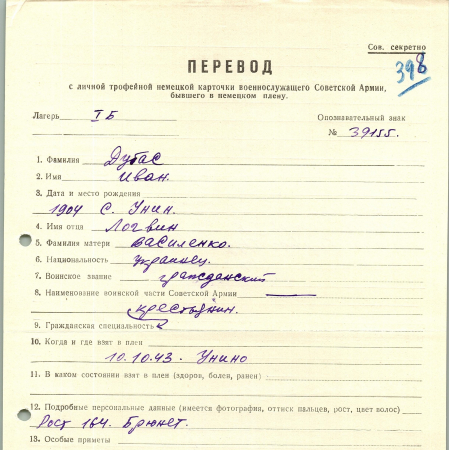 Сов. секретно
398
ПЕРЕВОД
с личной трофейной немецкой карточки военнослужащего Советской Армии,
бывшего в немецком плену.
Лагерь I Б
Опознавательный знак
№ 39155.
1. Фамилия Дубас
2. Имя Иван.
3. Дата и место рождения
1904 С. Унин.
4. Имя отца Логвин
5. Фамилия матери Василенко.
6. Национальность украинец.
7. Воинское звание гражданский
8. Наименование воинской части Советской Армии
крестьянин.
9. Гражданская специальность
10. Когда и где взят в плен
10.10.43. Унино
11. В каком состоянии взят в плен (здоров, болен, ранен)
12. Подробные персональные данные (имеется фотография, оттиск пальцев, рост, цвет волос)
Рост 164. Брюнет.
13. Особые приметы